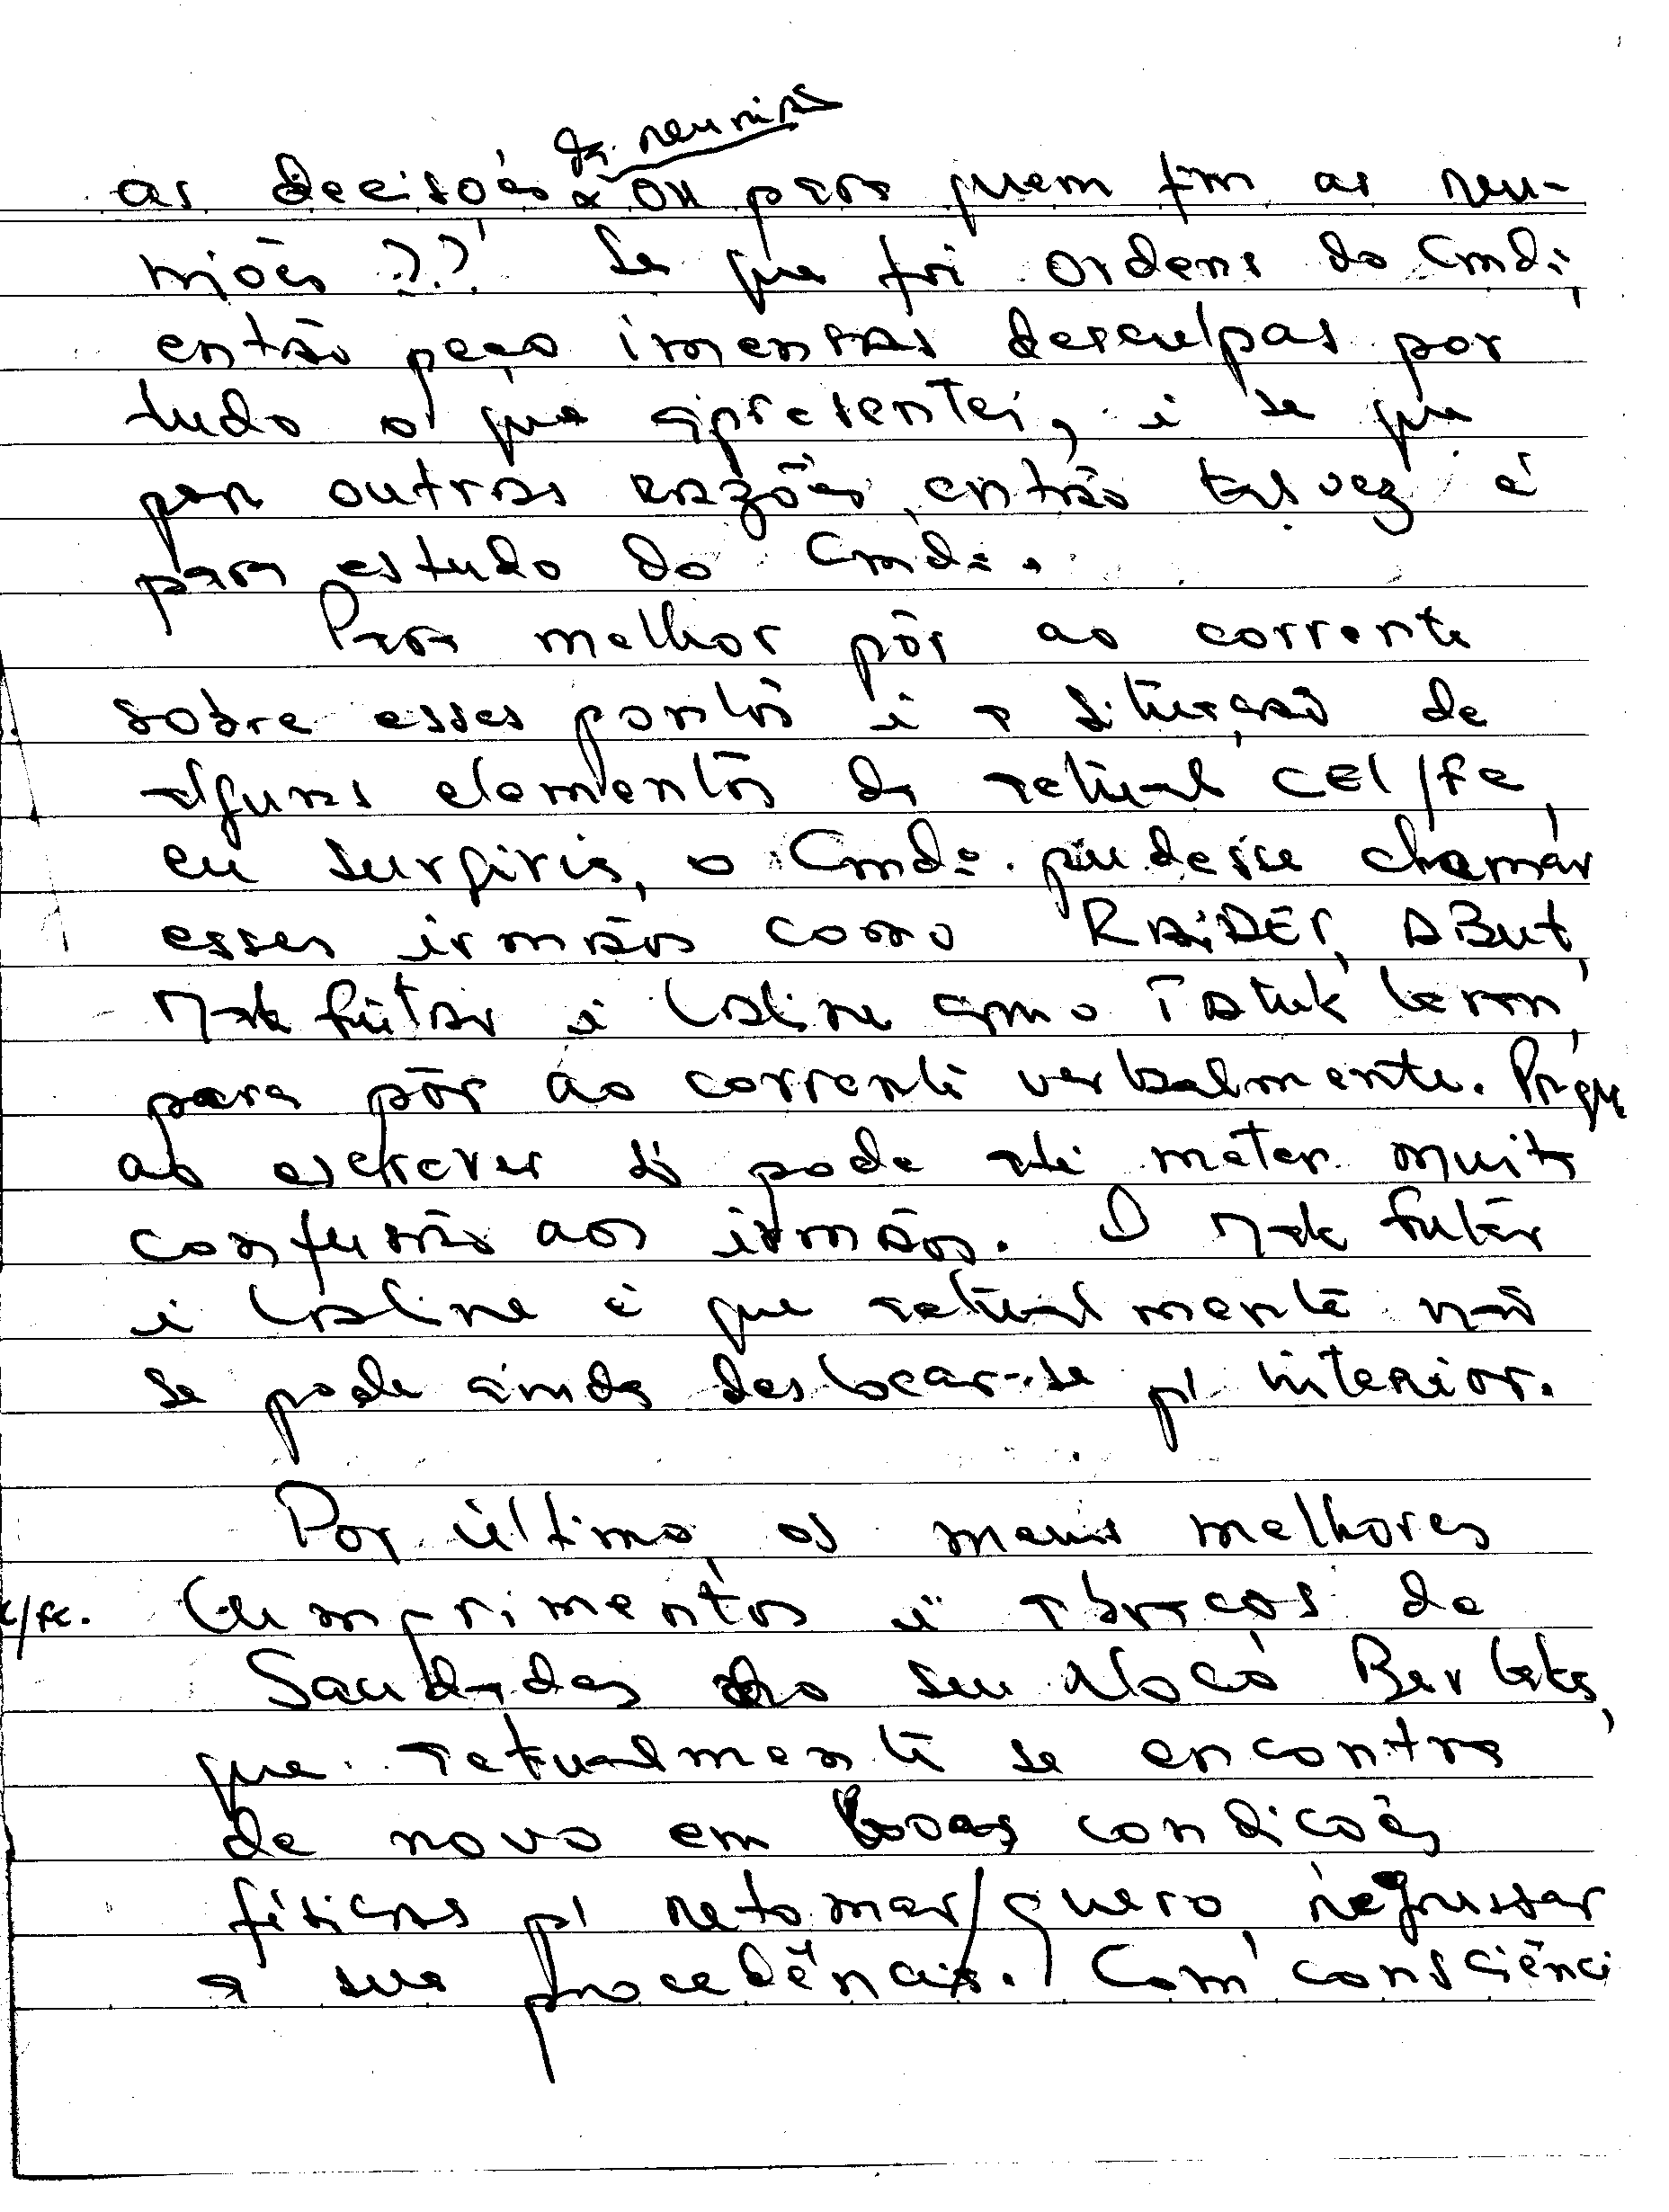 da reunião
as decisões ou para quem fim as reu-
niões ??' Se que foi ordens do Cmdt,
então peço imensas desculpas por
tudo o que apresentei, i se que
por outras razões, então talvez é
para estudo do Cmdt.
Para melhor pôr ao corrente
sobre esses pontos i a situação de
alguns elementos da actual CEL/FC,
eu surgiria, o Cmdt. pudesse chamar
esses irmãos como RAIDER, ABUT,
Mak fuitar i Laline como
para pôr ao corrente verbalmente. Porque
ao escrever só pode até meter muita
confusão aos irmãos. O Mak futár
i Laline é que actualmente não
se pode ainda deslocar-se p' interior.
Por último, os meus melhores
/fc. Cumprimentos i abraços de
Saudades do seu
que actualmente se encontra
de novo em boas condicões
físicas p' retomar/quero, regrussar
a sua procedência. Com consciênci